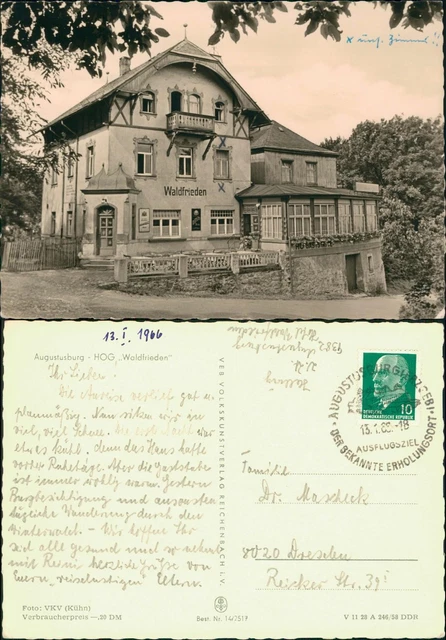 x uns. Zimmer!
Waldfrieden
13. I. 1966
Augustusburg - HOG „Waldfrieden"
Ihr Lieben!
Die Anreise verlief gut u.
planmäßig. Nun sitzen wir zu
viel, viel Schnee.
etwas kühl, denn das Haus hatte
vorher Ruhetage. Aber die Gaststube
ist immer wohlig warm. Gestern
Burgbesichtigung und ausgedehn
tägliche Wanderung durch den
Winterwald. - Wir hoffen Ihr
seid alle gesund und so nehmt
mit Reini herzliche Grüße von
Euern „reiselustigen" Eltern.
Foto: VKV (Kühn)
Verbraucherpreis —,20 DM
VEB VOLKSKUNSTVERLAG REICHENBACH i. V.
Best. Nr. 14/7519
9382 Augustusburg
DEUTSCHE
DEMOKRATISCHE REPUBLIK
10
AUGUSTUSBURG (ERZGEB)
13.1.66-18
AUSFLUGSZIEL
DER BEKANNTE ERHOLUNGSORT
Familie
Dr. Mascheck
8020 Dresden
Reicker Str. 39
V 11 28 A 246/58 DDR